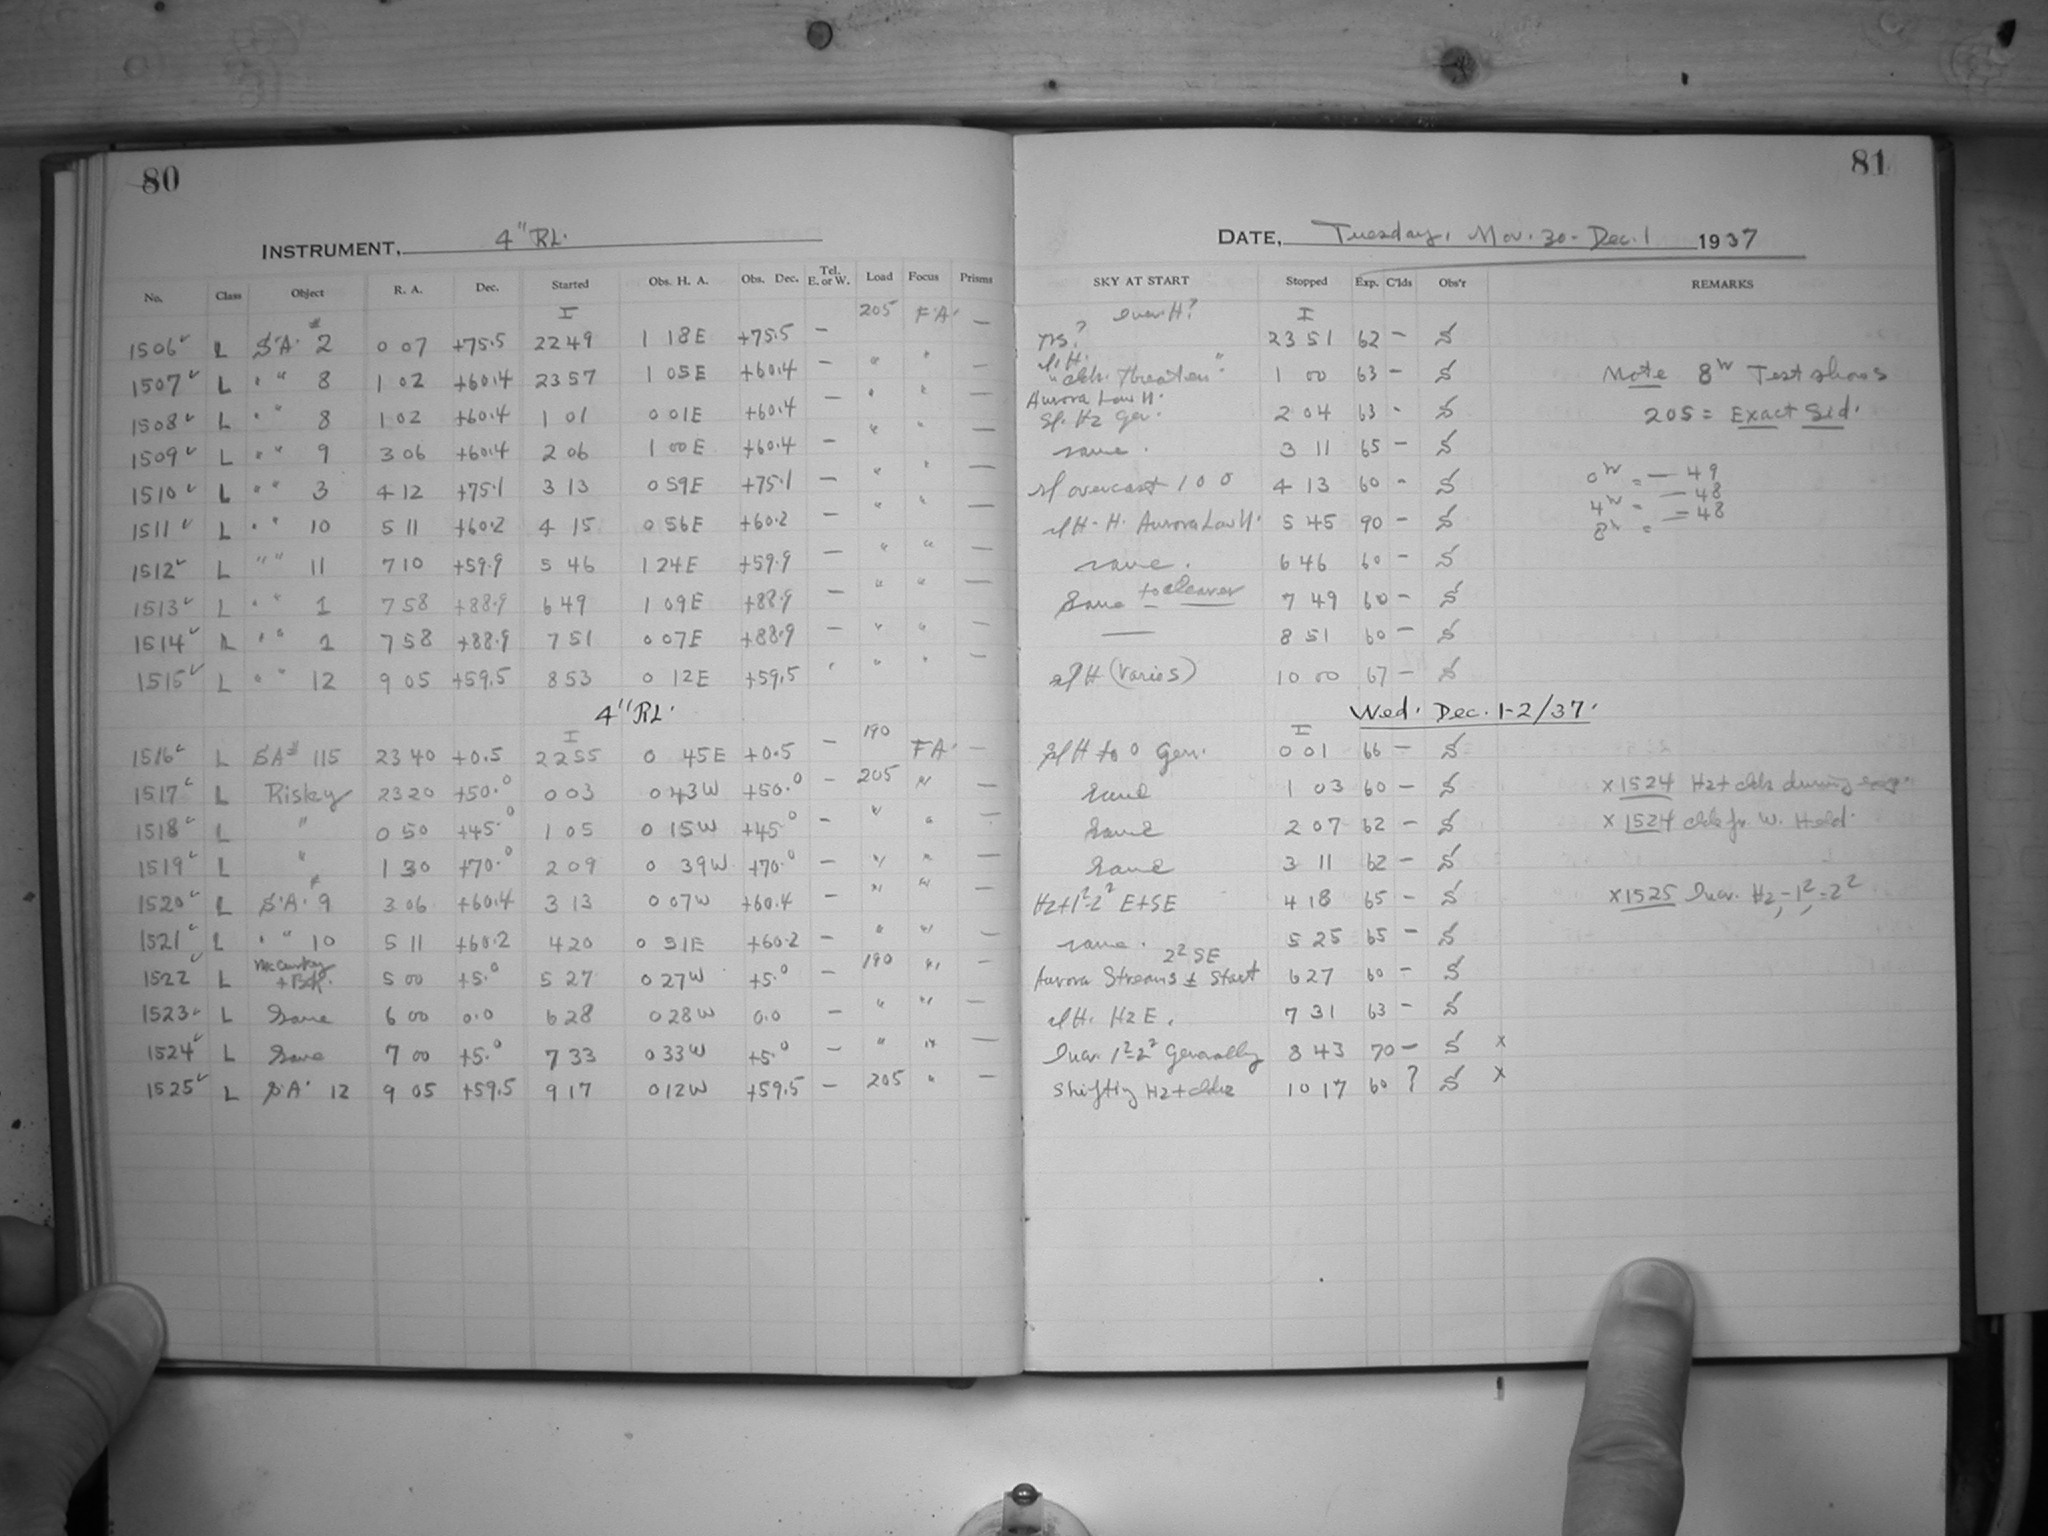 80
INSTRUMENT, 4" RL.
No. Class Object R. A. Dec. Started Obs. H. A. Obs. Dec. Tel. E. or W. Load Focus Prisms
I 205 F.A. —
1506 L S.A. # 2 0 07 +75.5 22 49 1 18E +75.5 —
1507 L " " 8 1 02 +60.4 23 57 1 05E +60.4 — " " —
1508 L " " 8 1 02 +60.4 1 01 0 01E +60.4 — " " —
1509 L " " 9 3 06 +60.4 2 06 1 00E +60.4 — " " —
1510 L " " 3 4 12 +75.1 3 13 0 59E +75.1 — " " —
1511 L " " 10 5 11 +60.2 4 15 0 56E +60.2 — " " —
1512 L " " 11 7 10 +59.9 5 46 1 24E +59.9 — " " —
1513 L " " 1 7 58 +88.9 6 49 1 09E +88.9 — " " —
1514 L " " 1 7 58 +88.9 7 51 0 07E +88.9 — " " —
1515 L " " 12 9 05 +59.5 8 53 0 12E +59.5 ' " " —
4" RL.
I
1516 L SA# 115 23 40 +0.5 22 55 0 45E +0.5 — 190 F A. —
1517 L Risley 23 20 +50.0 0 03 0 43W +50.0 — 205 " —
1518 L " 0 50 +45.0 1 05 0 15W +45.0 — " " —
1519 L " 1 30 +70.0 2 09 0 39W +70.0 — " " —
1520 L S.A. # 9 3 06 +60.4 3 13 0 07W +60.4 — " " —
1521 L " " 10 5 11 +60.2 4 20 0 51E +60.2 — " " —
1522 L McCuskey + Bok. 5 00 +5.0 5 27 0 27W +5.0 — 190 " —
1523 L Same 6 00 0.0 6 28 0 28W 0.0 — " " —
1524 L Same 7 00 +5.0 7 33 0 33W +5.0 — " " —
1525 L S.A. 12 9 05 +59.5 9 17 0 12W +59.5 — 205 " —
81
DATE, Tuesday, Nov. 30 - Dec. 1 1937
SKY AT START Stopped Exp. C'lds Obs'r REMARKS
H? I
23 51 62 — S
"clds. threaten" 1 00 63 — S Note 8w Test shows
Aurora Low N.
Sl. Hz Gen. 2 04 63 - S 205 = Exact Sid.
same. 3 11 65 — S
sl overcast 4 13 60 - S 0w = — 49
sl H - H. Aurora Low N. 5 45 90 — S 4w = — 48
same. 6 46 60 — S 8w = — 48
Same to clearer 7 49 60 — S
— 8 51 60 — S
sl H (varies) 10 00 67 — S
Wed. Dec. 1-2/37.
I
Sl H to 0 Gen. 0 01 66 — S
Same 1 03 60 — S x 1524 Hz + clds during exp.
Same 2 07 62 — S x 1524 clds fr. W. Held.
Same 3 11 62 — S
Hz + 1²-2² E + SE 4 18 65 — S x 1525 Hz - 1² - 2²
same. 5 25 65 — S
2² SE
Aurora Streams ± Start 6 27 60 — S
sl H. Hz E. 7 31 63 — S
1²-2² Generally 8 43 70 — S x
Shifting Hz + clds 10 17 60 ? S x